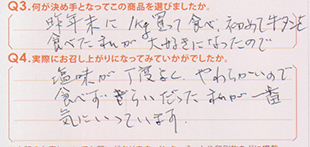 Q3.何が決め手となってこの商品を選びましたか。
昨年末に1kg買って食べ、初めて牛タンを
食べたまごが大好きになったので
Q4.実際にお召し上がりになってみていかがでしたか。
塩味が丁度よく、やわらかいので
食べずぎらいだったまごが一番
気にいっています。